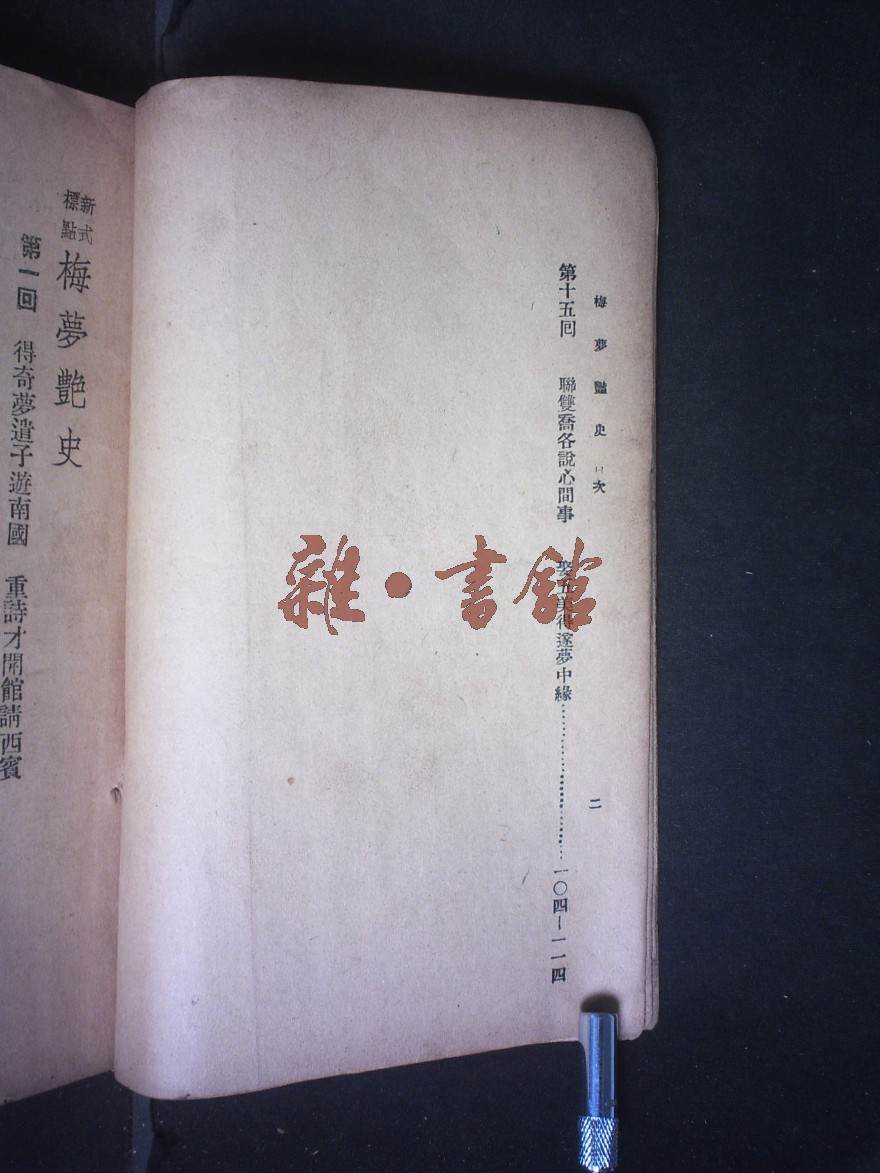 梅夢豔史 目次
二
第十五回 聯雙喬各說心間事 娶五美得遂夢中緣……………………一〇四—一一四
雜·書館
新式標點 梅夢艷史
第一回 得奇夢遣子遊南國 重詩才開館請西賓